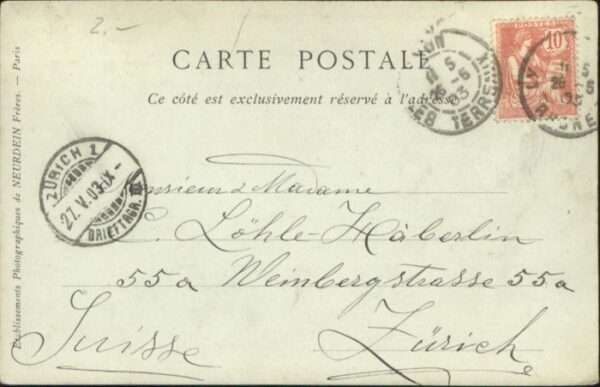 2.-
CARTE POSTALE
Ce côté est exclusivement réservé à l'adresse
10
LYON
LES TERREAUX
26 5 03
RHONE
ZÜRICH 1
27.V.03.IX-
BRIEFTRGR.
Monsieur & Madame
C. Löhle-Häberlin
55a Weinbergstrasse 55a
Suisse Zürich
Etablissements Photographiques de NEURDEIN Frères. — Paris